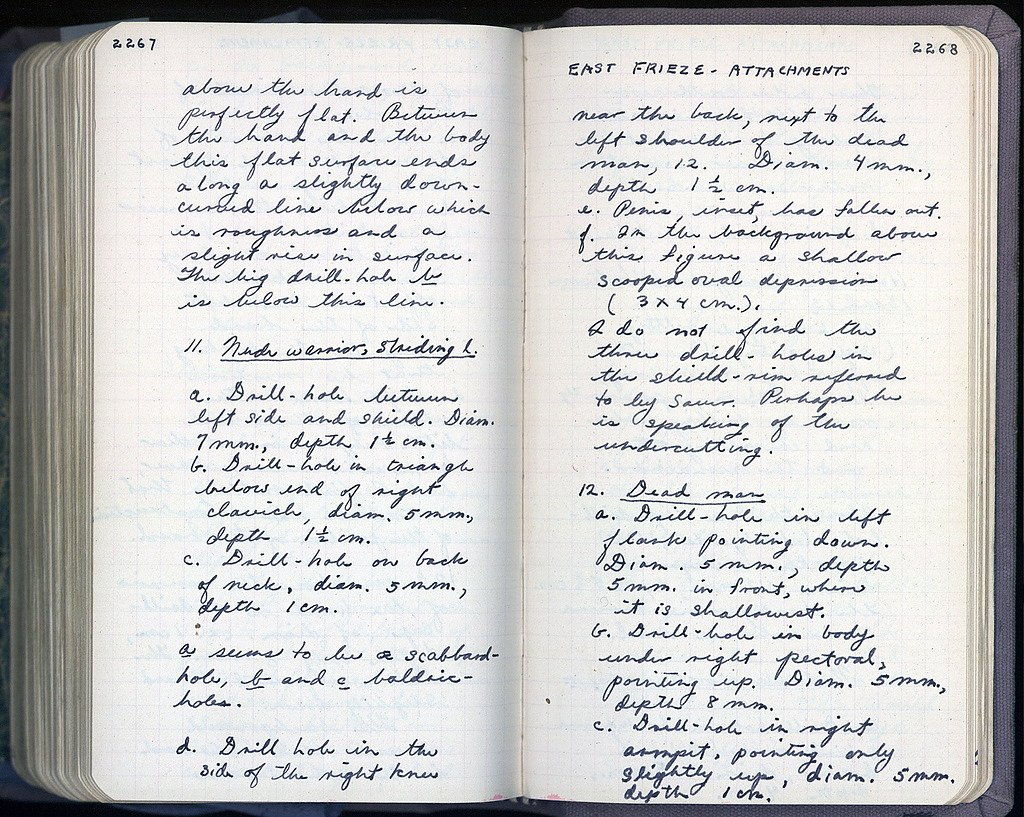 2267
above the hand is
perfectly flat. Between
the hand and the body
this flat surface ends
along a slightly down-
curved line below which
is roughness and a
slight rise in surface.
The big drill-hole b
is below this line.
11. Nude warrior, striding l.
a. Drill-hole between
left side and shield. Diam.
7 mm., depth 1½ cm.
b. Drill-hole in triangle
below end of right
clavicle, diam. 5 mm.,
depth 1½ cm.
c. Drill-hole on back
of neck, diam. 5 mm.,
depth 1 cm.
a seems to be a scabbard-
hole, b and c baldric-
holes.
d. Drill hole in the
side of the right knee
2268
EAST FRIEZE - ATTACHMENTS
near the back, next to the
left shoulder of the dead
man, 12. Diam. 4 mm.,
depth 1½ cm.
e. Penis, inset, has fallen out.
f. In the background above
this figure a shallow
scooped oval depression
(3 x 4 cm.).
I do not find the
three drill-holes in
the shield-rim referred
to by Sauer. Perhaps he
is speaking of the
undercutting.
12. Dead man
a. Drill-hole in left
flank pointing down.
Diam. 5 mm., depth
5 mm. in front, where
it is shallowest.
b. Drill-hole in body
under right pectoral,
pointing up. Diam. 5 mm.,
depth 8 mm.
c. Drill-hole in right
armpit, pointing only
slightly up, diam. 5 mm.
depth 1 cm.